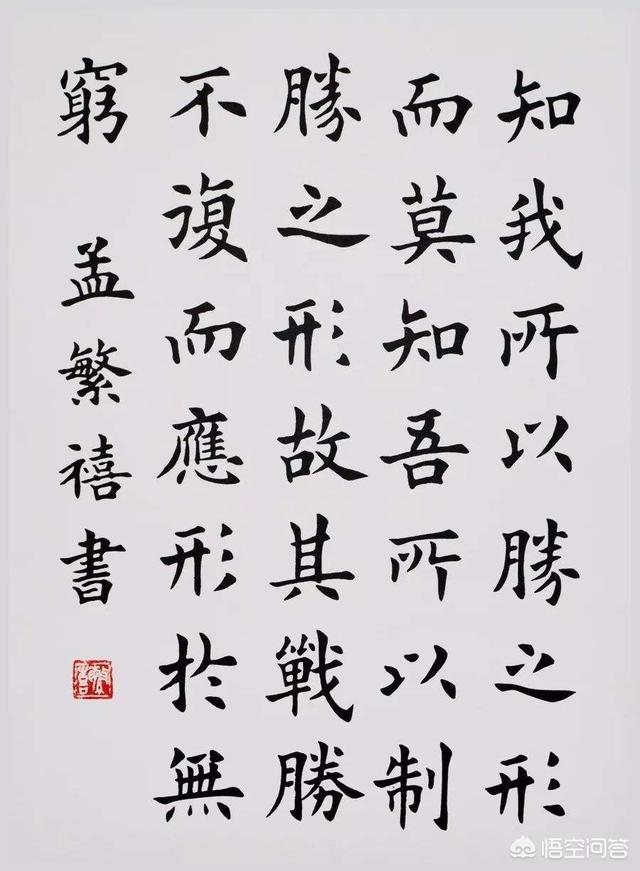 知我所以勝之形
而莫知吾所以制
勝之形故其戰勝
不復而應形於無
窮
孟繁禧書
悟空问答